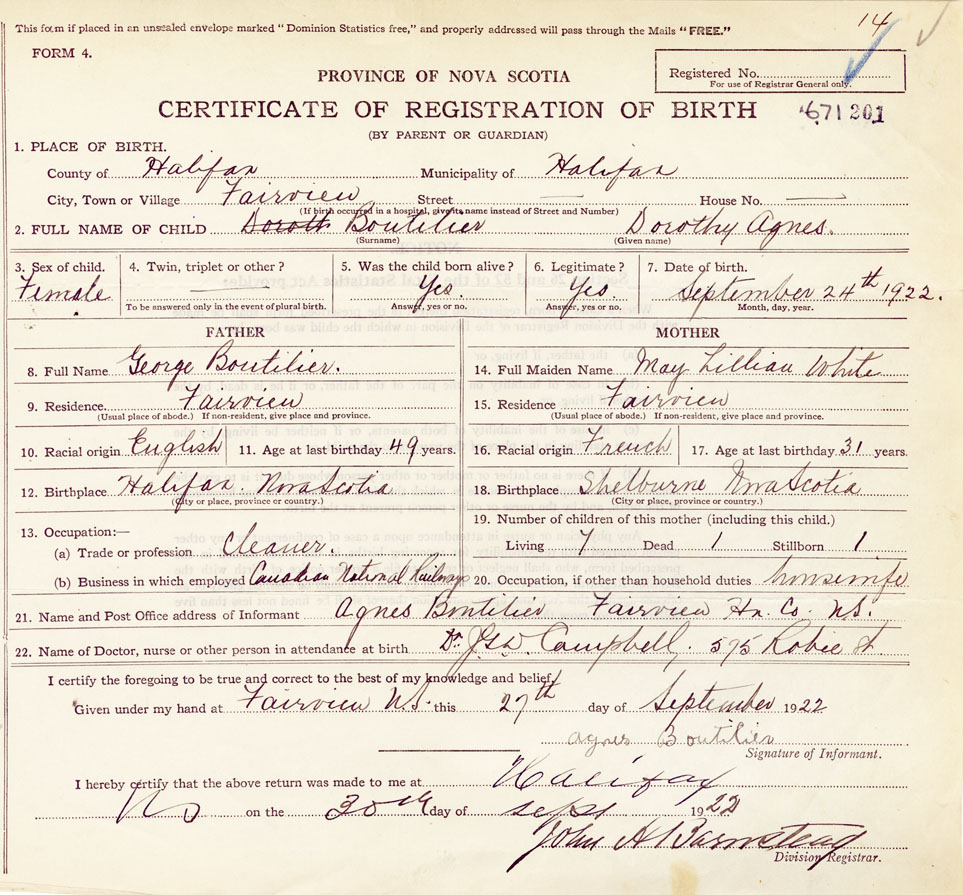 14
This form if placed in an unsealed envelope marked "Dominion Statistics free," and properly addressed will pass through the Mails "FREE."
FORM 4.
PROVINCE OF NOVA SCOTIA
Registered No.
For use of Registrar General only.
CERTIFICATE OF REGISTRATION OF BIRTH
671 201
(BY PARENT OR GUARDIAN)
1. PLACE OF BIRTH.
County of Halifax Municipality of Halifax
City, Town or Village Fairview Street — House No. —
(If birth occurred in a hospital, give its name instead of Street and Number)
2. FULL NAME OF CHILD Doroth Boutilier Dorothy Agnes.
(Surname) (Given name)
3. Sex of child. 4. Twin, triplet or other? 5. Was the child born alive? 6. Legitimate? 7. Date of birth.
Female — Yes. Yes. September 24th 1922.
To be answered only in the event of plural birth. Answer, yes or no. Answer, yes or no. Month, day, year.
FATHER
8. Full Name George Boutilier.
9. Residence Fairview
(Usual place of abode.) If non-resident, give place and province.
10. Racial origin English 11. Age at last birthday 49 years.
12. Birthplace Halifax Nova Scotia
(City or place, province or country.)
13. Occupation:—
(a) Trade or profession Cleaner.
(b) Business in which employed Canadian National Railways
MOTHER
14. Full Maiden Name May Lillian White
15. Residence Fairview
(Usual place of abode.) If non-resident, give place and province.
16. Racial origin French 17. Age at last birthday 31 years.
18. Birthplace Shelburne Nova Scotia
(City or place, province or country.)
19. Number of children of this mother (including this child.)
Living 7 Dead 1 Stillborn 1.
20. Occupation, if other than household duties housewife
21. Name and Post Office address of Informant Agnes Boutilier Fairview Hx. Co. N.S.
22. Name of Doctor, nurse or other person in attendance at birth Dr. Campbell, 575 Robie St
I certify the foregoing to be true and correct to the best of my knowledge and belief,
Given under my hand at Fairview N.S. this 27th day of September 1922
Agnes Boutilier
Signature of Informant.
I hereby certify that the above return was made to me at Halifax
NS on the 30th day of Sept 1922
John A Barnstead
Division Registrar.